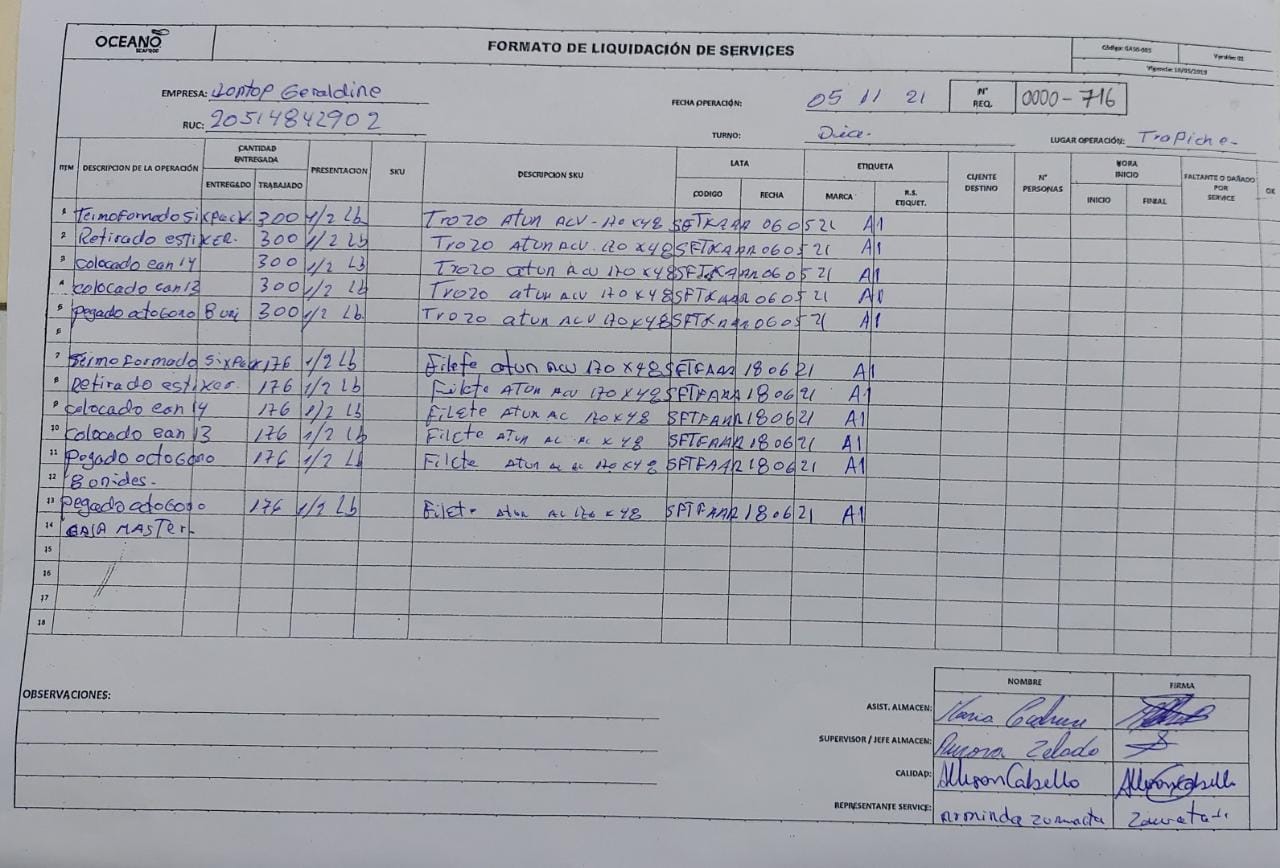 OCEANO SEAFOOD
FORMATO DE LIQUIDACIÓN DE SERVICES
Código: GASG-005 Versión: 01
Vigencia: 18/05/2019
EMPRESA: Jontop Geraldine
FECHA OPERACIÓN: 05 11 21
N° REQ. 0000-716
RUC: 20514842902
TURNO: Dia.
LUGAR OPERACIÓN: Trapiche-
ITEM DESCRIPCION DE LA OPERACIÓN CANTIDAD ENTREGADA PRESENTACION SKU DESCRIPCION SKU LATA ETIQUETA CLIENTE DESTINO N° PERSONAS HORA INICIO FALTANTE O DAÑADO POR SERVICE
ENTREGADO TRABAJADO CODIGO FECHA MARCA R.S. ETIQUET. INICIO FINIAL
1 Teimoformado Sixpack 300 1/2 Lb Trozo Atun ACV-170x48 SFTKAAR 060521 A1
2 Retirado estiker. 300 1/2 Lb Trozo Atun ACV.170x48 SFTKAAR 060521 A1
3 Colocado ean 14 300 1/2 Lb Trozo atun ACV 170x48 SFTKAAR 060521 A1
4 Colocado ean 13 300 1/2 Lb Trozo atun ACV 170x48 SFTKAAR 060521 A1
5 Pegado octogono 8 uni 300 1/2 Lb Trozo atun ACV 170x48 SFTKAAR 060521 A1
6
7 Teimoformado Sixpack 176 1/2 Lb Filete atun ACV 170x48 SFTFAAR 180621 A1
8 Retirado estiker. 176 1/2 Lb Filete ATUN ACV 170x48 SFTFAAR 180621 A1
9 Colocado ean 14 176 1/2 Lb Filete ATUN AC 170x48 SFTFAAR 180621 A1
10 Colocado ean 13 176 1/2 Lb Filete ATUN AC AC x 48 SFTFAAR 180621 A1
11 Pegado octogono 176 1/2 Lb Filete ATUN AC AC 170x48 SFTFAAR 180621 A1
12 8 onides.
13 Pegado octogono 176 1/2 Lb Filete Atun AC 170x48 SFTFAAR 180621 A1
14 CAJA MASTER
15
16
17
18
OBSERVACIONES:
NOMBRE FIRMA
ASIST. ALMACEN: Maria
SUPERVISOR / JEFE ALMACEN: Aurora Zelado
CALIDAD: Allison Cabello Allison Cabello
REPRESENTANTE SERVICE: Arminda Zumaeta